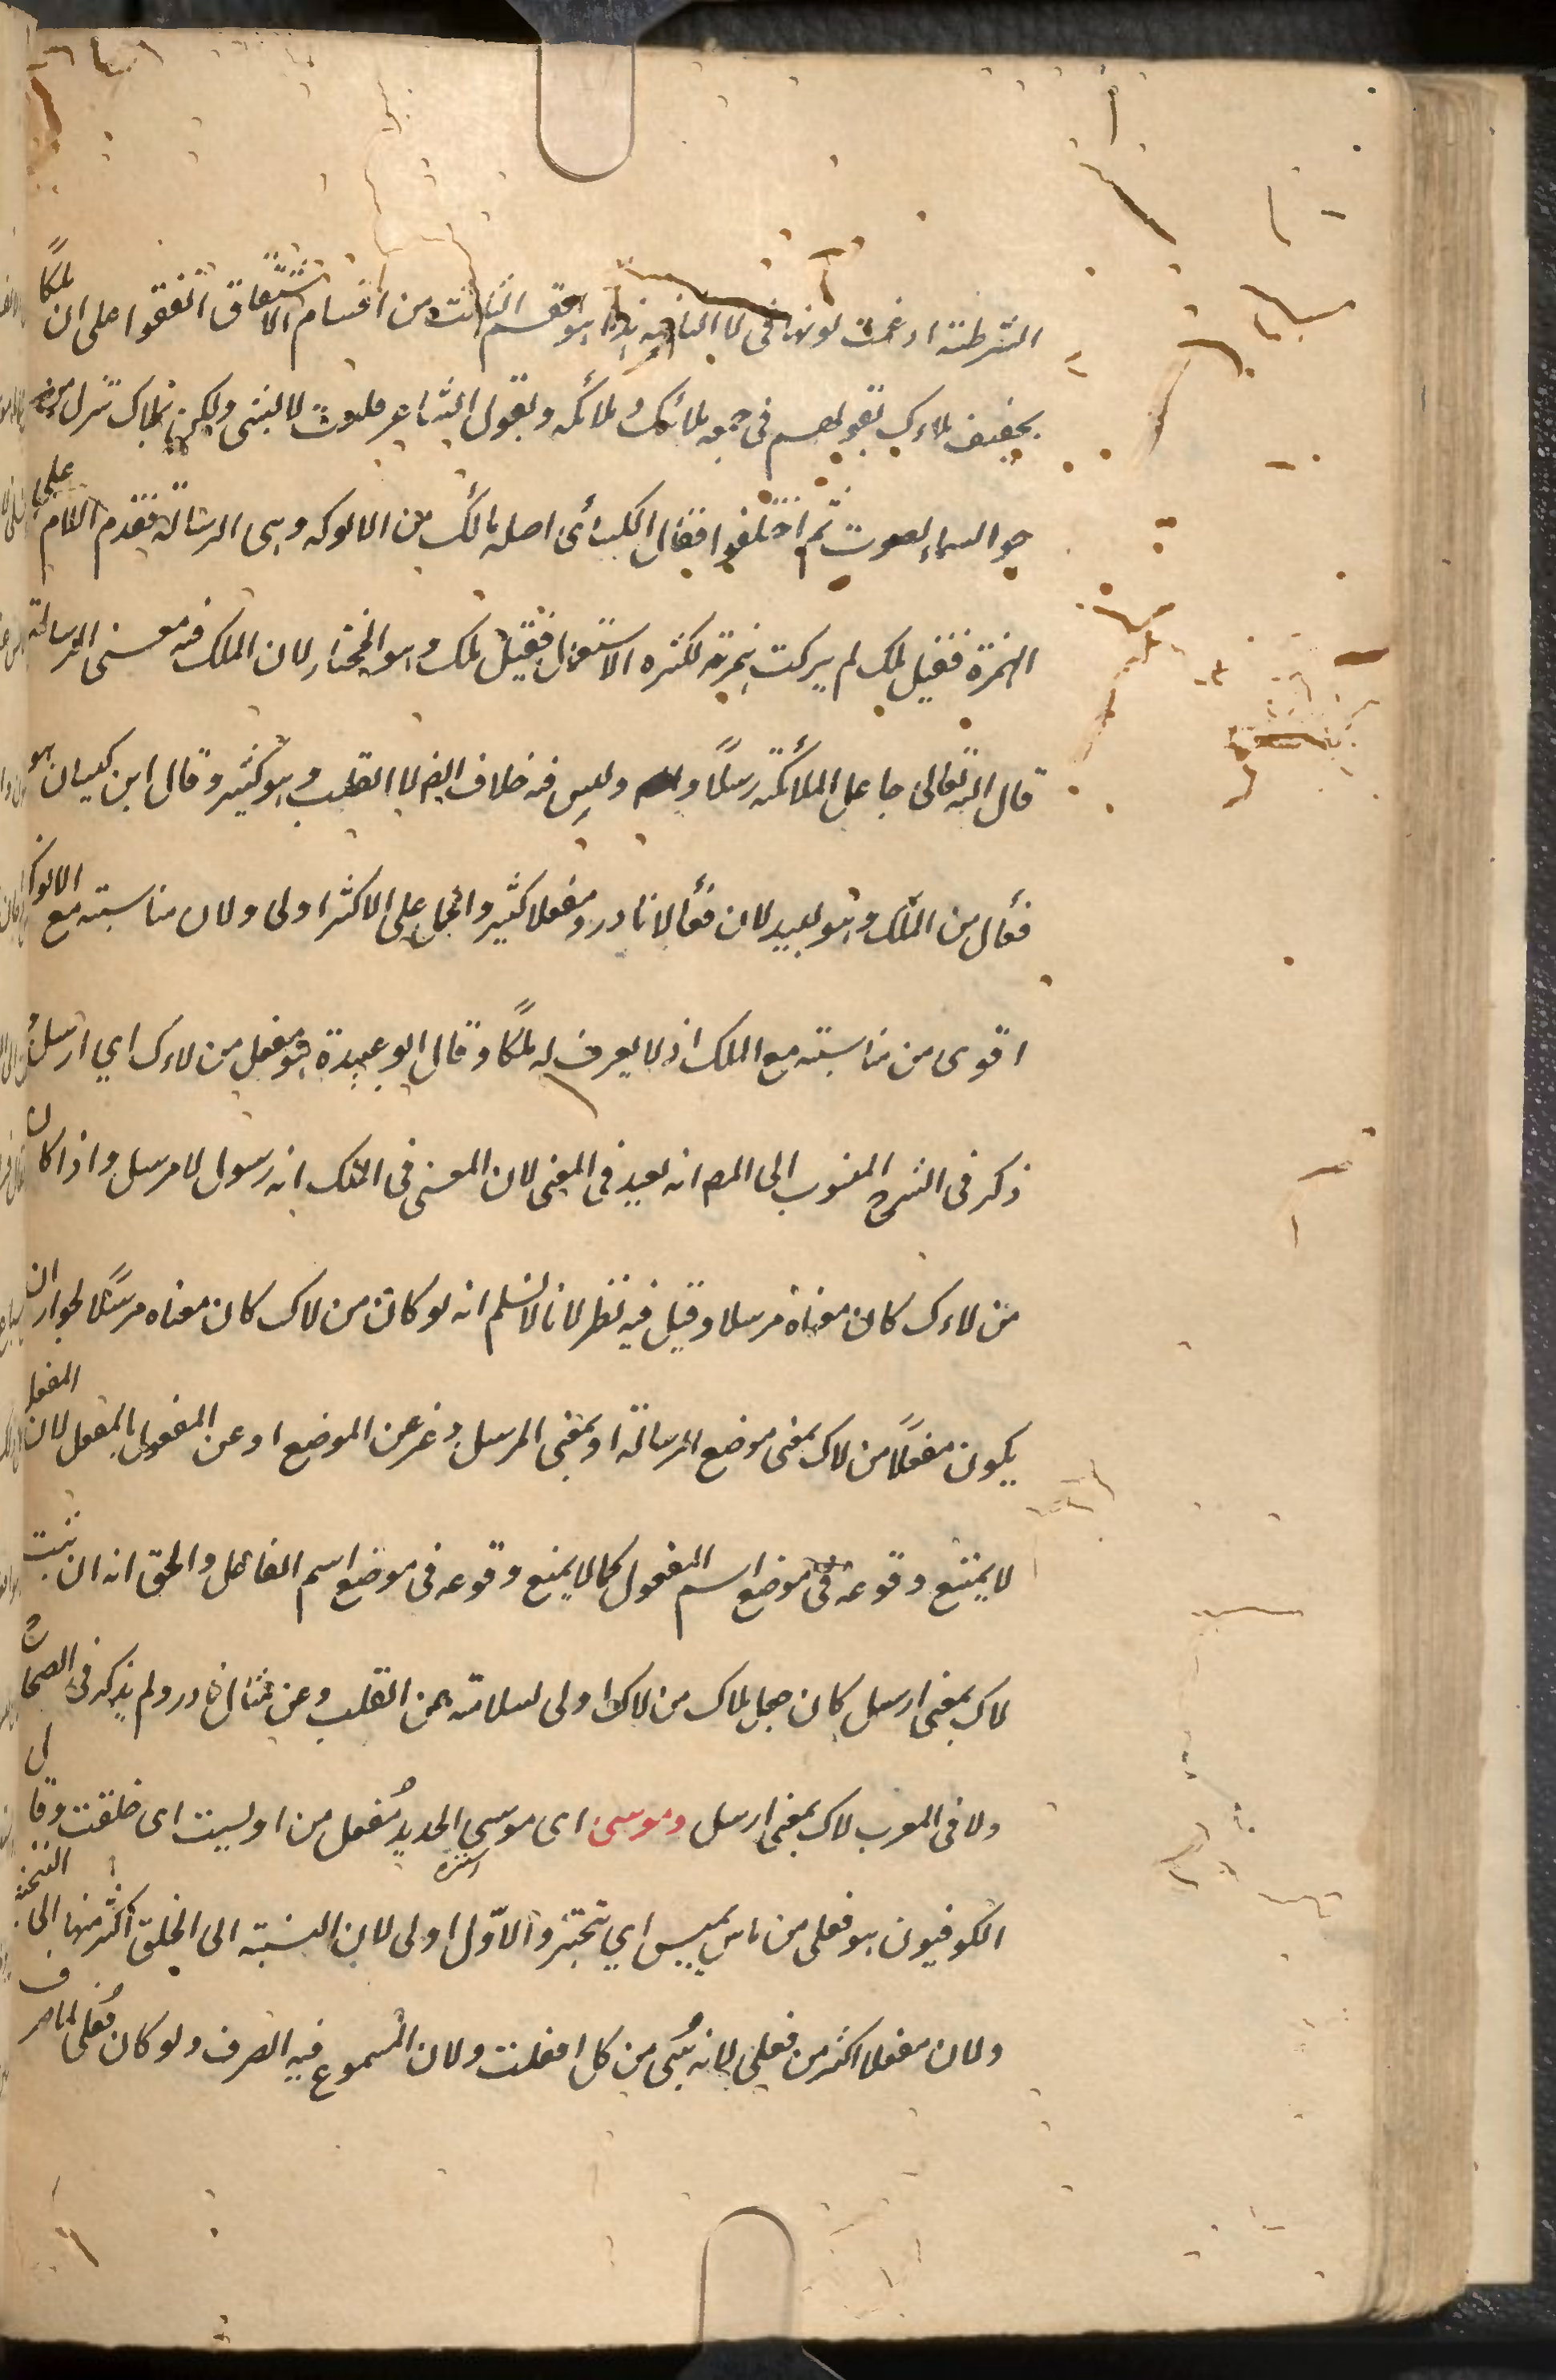 الشرطية ادغمت نونها فى لا النافية هذا هو القسم الثالث من اقسام الاشتقاق اتفقوا على ان ملكًا
تخفيف ملاءك بقولهم فى جمعه ملائك وملائكه وبقول الشاعر فلوت لانسى ولكن لملاك تنزل من
جو السماء يصوب ثم اختلفوا فقال الكسائى اصله مالك من الالوكه وهى الرسالة فقدم اللام على
الهمزة فقيل ملك لم يركت همزته لكثره الاستعمال فقيل ملك وهو المختار لان الملك فيه معنى الرسالة
قال الله تعالى جاعل الملائكة رسلًا وليس فيه خلاف الا القلب وهو كثير وقال ابن كيسان هو
فعأل من الملك وهو بعيد لان فعألا نادر ومفعلا كثير والحمل على الاكثر اولى ولان مناسبته مع الالوكة
اقوى من مناسبته مع الملك اذ لا يعرف له ملكًا وقال ابو عبيدة هو مفعل من لاءك اي ارسل و
ذكر فى الشرح المنسوب الى المص انه بعيد فى المعنى لان المعنى فى الملك انه رسول لا مرسل واذا كان
من لاءك كان معناه مرسلا وقيل فيه نظر لانا لا نسلم انه لو كان من لاك كان معناه مرسلًا لجواز ان
يكون مفعلًا من لاك بمعنى موضع الرسالة او بمعنى المرسل وغر عن الموضع او عن المفعول بالمفعل لان المفعل
لا يمتنع وقوعه فى موضع اسم المفعول كما لا يمنع وقوعه فى موضع اسم الفاعل والحق انه ان ثبت
لاك بمعنى ارسل كان جعل ملاك من لاك اولى لسلامته عن القلب وعن مثال نادر ولم يذكر فى الصحاح
ولا فى المغرب لاك بمعنى ارسل وموسى اى موسى الحديد مُفعل من اوسيت اى حلقت وقال
الكوفيون هو فعلى من ماس يميس اي تبختر والاوّل اولى لان النسبة الى الحلق اكثر منها الى التبختر
ولان مفعلا اكثر من فعلى لانه يُبنى من كل افعلت ولان المسموع فيه الصرف ولو كان فُعلى لما صرف